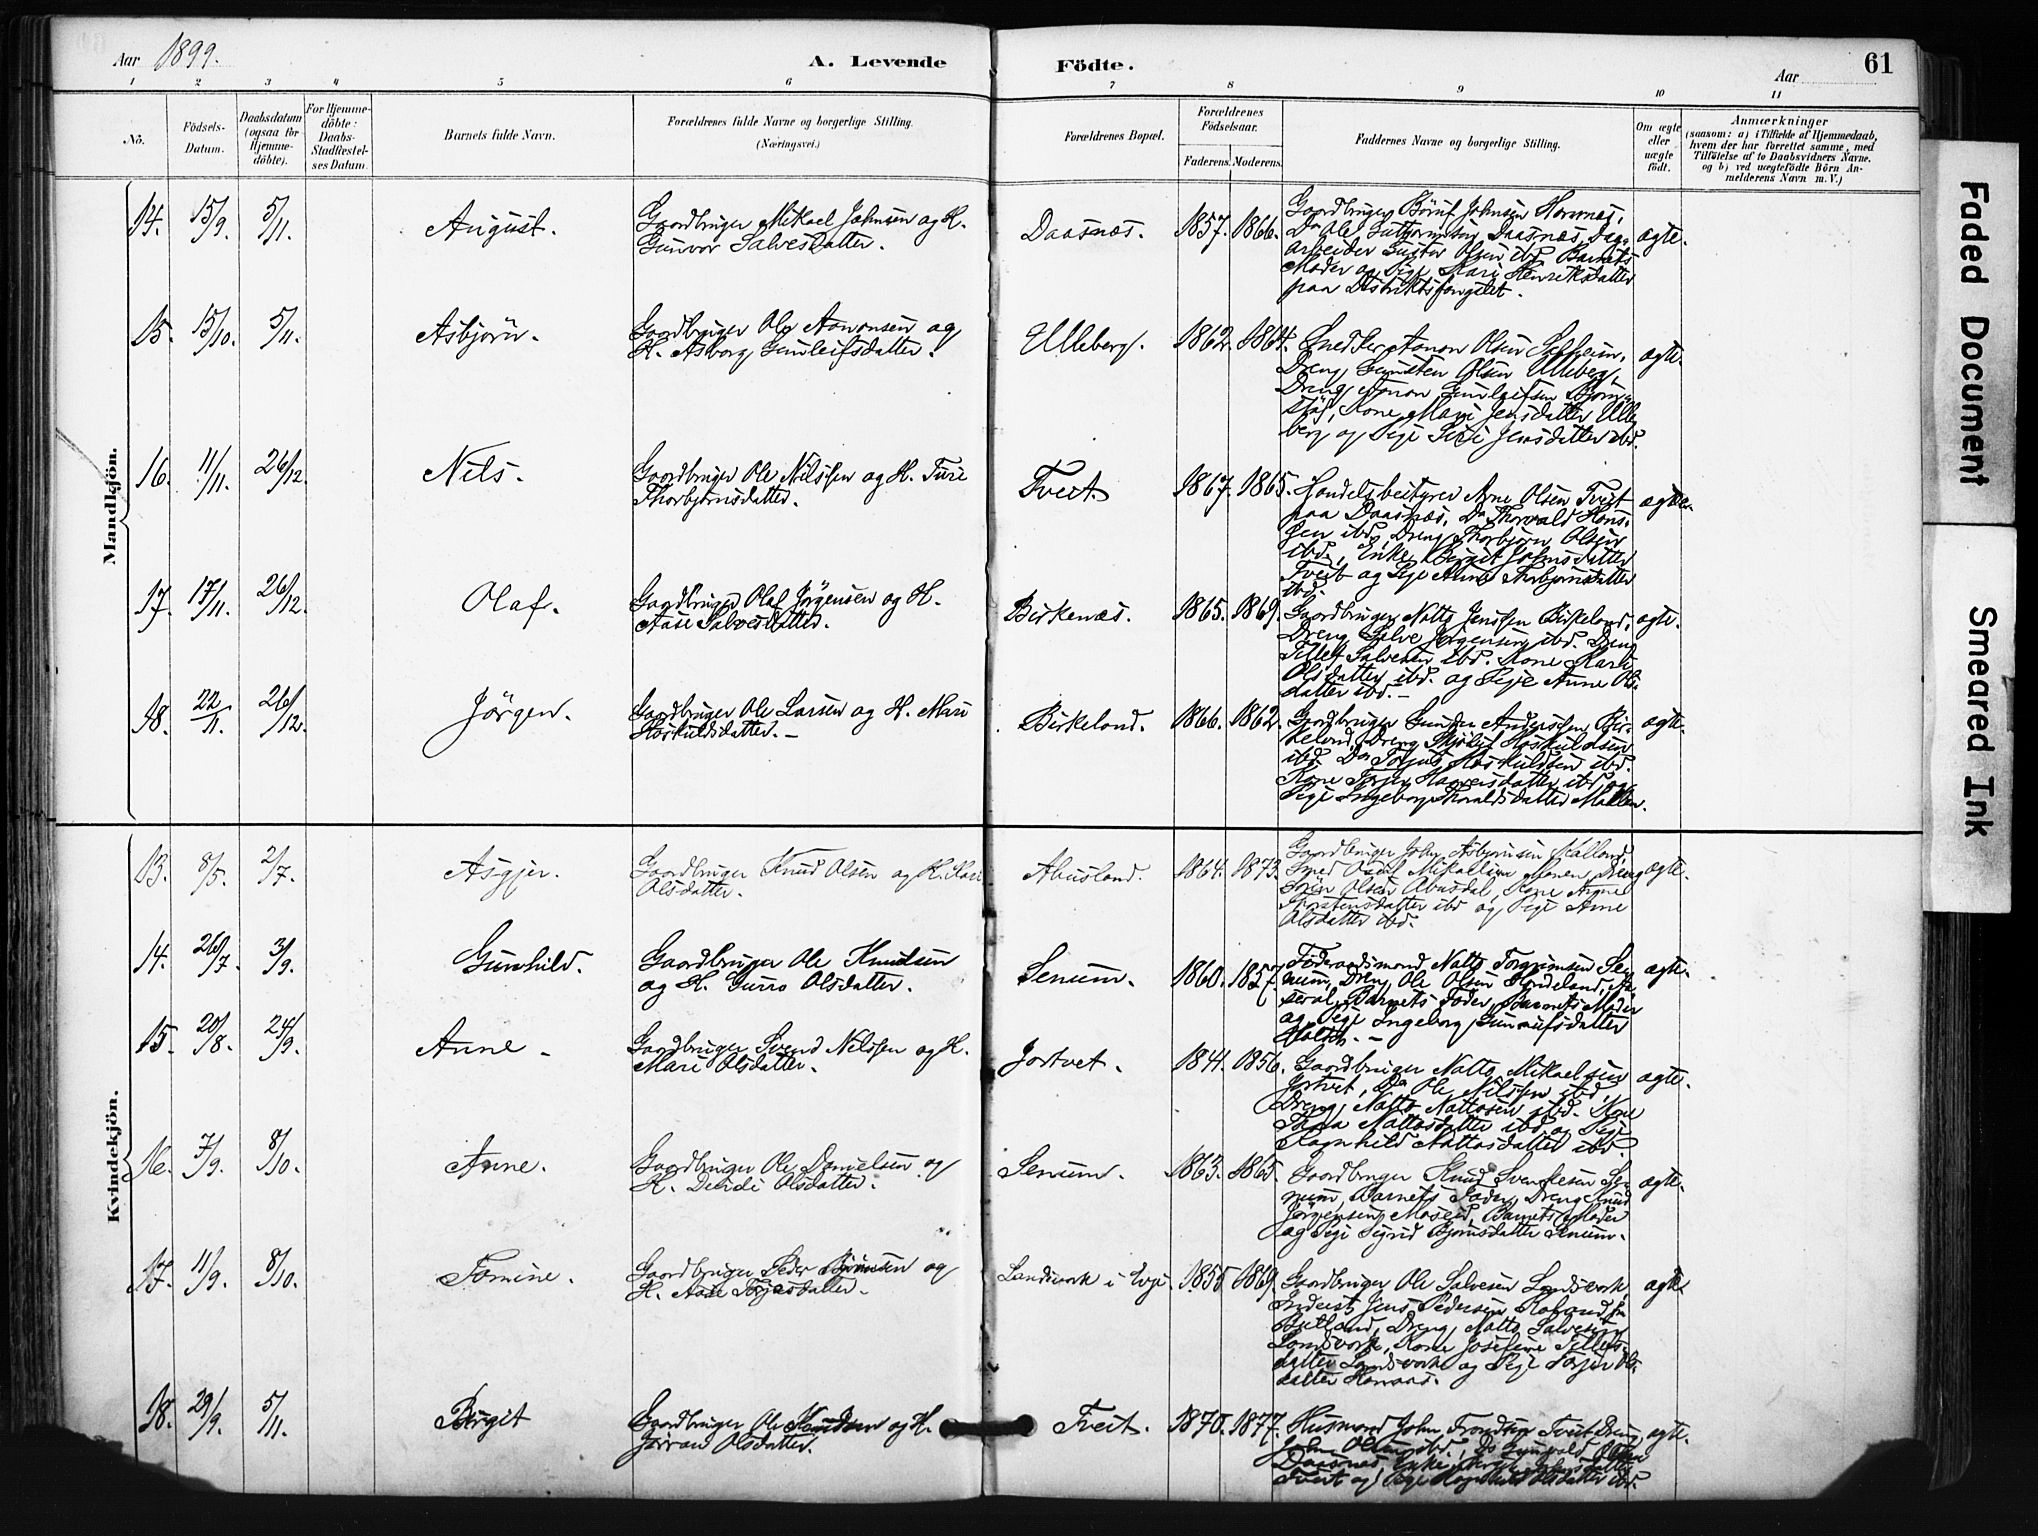 Aar 1899.
A. Levende Födte.
Aar
61
1 2 3 4 5 6 7 8 9 10 11
No.
Födsels-Datum.
Daabsdatum (ogsaa for Hjemme-döbte).
For Hjemme-döbte: Daabs-Stadfestel-ses Datum.
Barnets fulde Navn.
Forældrenes fulde Navne og borgerlige Stilling. (Næringsvei.)
Forældrenes Bopæl.
Forældrenes Födselsaar.
Faderens. Moderens.
Faddernes Navne og borgerlige Stilling.
Om ægte eller uægte födt.
Anmærkninger
(saasom: a) i Tilfælde af Hjemmedaab, hvem der har forrettet samme, med Tilföielse af to Daabsvidners Navne, og b) ved uægtefödte Börn An-melderens Navn m. V.)
Mandkjön.
14. 15/9. 5/11. August. Gaardbruger Mikael Johnsen og H.
Gunvor Salvesdatter.
Daasnæs. 1857. 1866.
Johnsen
Do Ole Guttormsen Daasnæs, Dag-
arbeider Gustav Olsen ibd. Barnets
Moder og Pige Kari Henriksdatter
paa Distriktsfængslet.
ægte.
15. 15/10. 5/11. Asbjörn. Gaardbruger Ole Aanonsen og
H. Asborg Gunleifsdatter.
Ulleberg. 1862. 1864. Snedker Aanon Olsen
Dreng Gunsten Olsen Ulleberg,
Dreng Aanon Gunleifsen
Kone Mari Jensdatter Ulle-
berg og Pige Siri Jensdatter ibd.
ægte.
16. 11/11. 26/12. Nils. Gaardbruger Ole Nilssen og H. Turi
Thorbjørnsdatter.
Tveit 1867. 1865. Handelsbestyrer Arne Olsen Tveit
paa Daasnæs, Do Thorvald Hans-
sen ibd., Dreng Thorbjörn Olsen
ibd., Enke Birgit Johnsdatter
Tveit og Pige Thorbjørnsdatter
ibd.
ægte.
17. 17/11. 26/12. Olaf. Gaardbruger Olaf Jörgensen og H.
Aase Salvesdatter.
Birkenæs. 1865. 1869. Gaardbruger Natto Jenssen Birkeland,
Dreng Salve Jörgensen ibd. Dreng
Tellef Salvesen ibd. Kone Kari
Olsdatter ibd. og Pige Anne Ols-
datter ibd. –
ægte.
18. 22/11. 26/12. Jörgen. Gaardbruger Ole Larsen og H. Mari
Höskuldsdatter. –
Birkeland. 1866. 1862. Gaardbruger Gunder Anderssen Bir-
keland, Dreng Höskuldsen
ibd. Do Torjus Höskuldsen ibd.
Kone Torjer ibd. og
Pige Ingeborg Thoraldsdatter
ægte.
Kvindekjön.
13. 8/5. 2/7. Asgjer. Gaardbruger Knud Olsen og H. Kari
Olsdatter.
Abusland. 1864. 1873. Gaardbruger John Asbjörnsen
Smed Mikaelsen Dreng
Sören Olsen Abusdal, Kone
Thorstensdatter ibd og Pige Anne
Olsdatter ibd.
ægte.
14. 26/7. 3/9. Gunhild. Gaardbruger Ole Knudsen
og H. Gurro Olsdatter.
Senum. 1860. 1857. Föderaadsmand Natto Torgrimsen Se-
num, Dreng Ole Olsen
Barnets Fader, Barnets Moder
og Pige Ingeborg Gunnufsdatter
ægte.
15. 20/8. 24/9. Anne – Gaardbruger Svend Nilssen og H.
Mari Olsdatter.
Jortvet. 1844. 1856. Gaardbruger Natto Mikaelsen
Jortvet, Do Ole Nilssen ibd.
Dreng Natto Nattosen ibd. Kone
Thea Nattosdatter ibd og Pige
Ragnhild Nattosdatter ibd.
ægte.
16. 7/9. 8/10. Anne. Gaardbruger Ole Danielsen og
H. Deidi Olsdatter.
Senum. 1863. 1865. Gaardbruger Knud Svenkesen Se-
num, Barnets Fader, Dreng Knud
Jörgensen Moseid, Barnets Moder
og Pige Sigrid Bjornsdatter Senum.
ægte.
17. 11/9. 8/10. Tomine. Gaardbruger Peder Björnsen og
H. Aase Torjusdatter.
Landsverk i Evje. 1855 1869. Gaardbruger Ole Salvesen Landsverk,
Inderst Jens Pedersen
Dreng Natto Salvesen
Landsverk, Kone Josefine Tellefs-
datter Landsverk og Pige Torjer Ols-
datter
ægte
18. 29/9. 5/11. Birgit Gaardbruger Ole Knudsen og H.
Jöran Olsdatter.
Tveit. 1870. 1877. Husmand John Trondsen Tveit, Dreng
John Olsen ibd., Do Gunvald Olsen
Daasnæs, Enke Birgit Johnsdatter
Tveit og Pige Ragnhild Olsdatter ibd.
ægte.
Faded Document
Smeared Ink